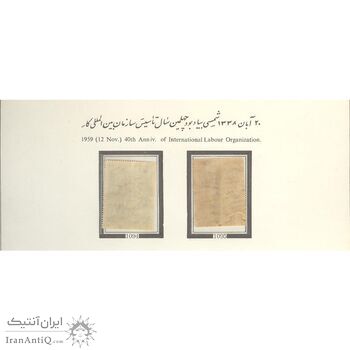 ۲۰ آبان ۱۳۳۸ شمسی بیادبود چهلمین سال تأسیس سازمان بین المللی کار
1959 (12 Nov.) 40th Anniv. of International Labour Organization.
1094 1095
ایران آنتیک
IranAntiQ.com